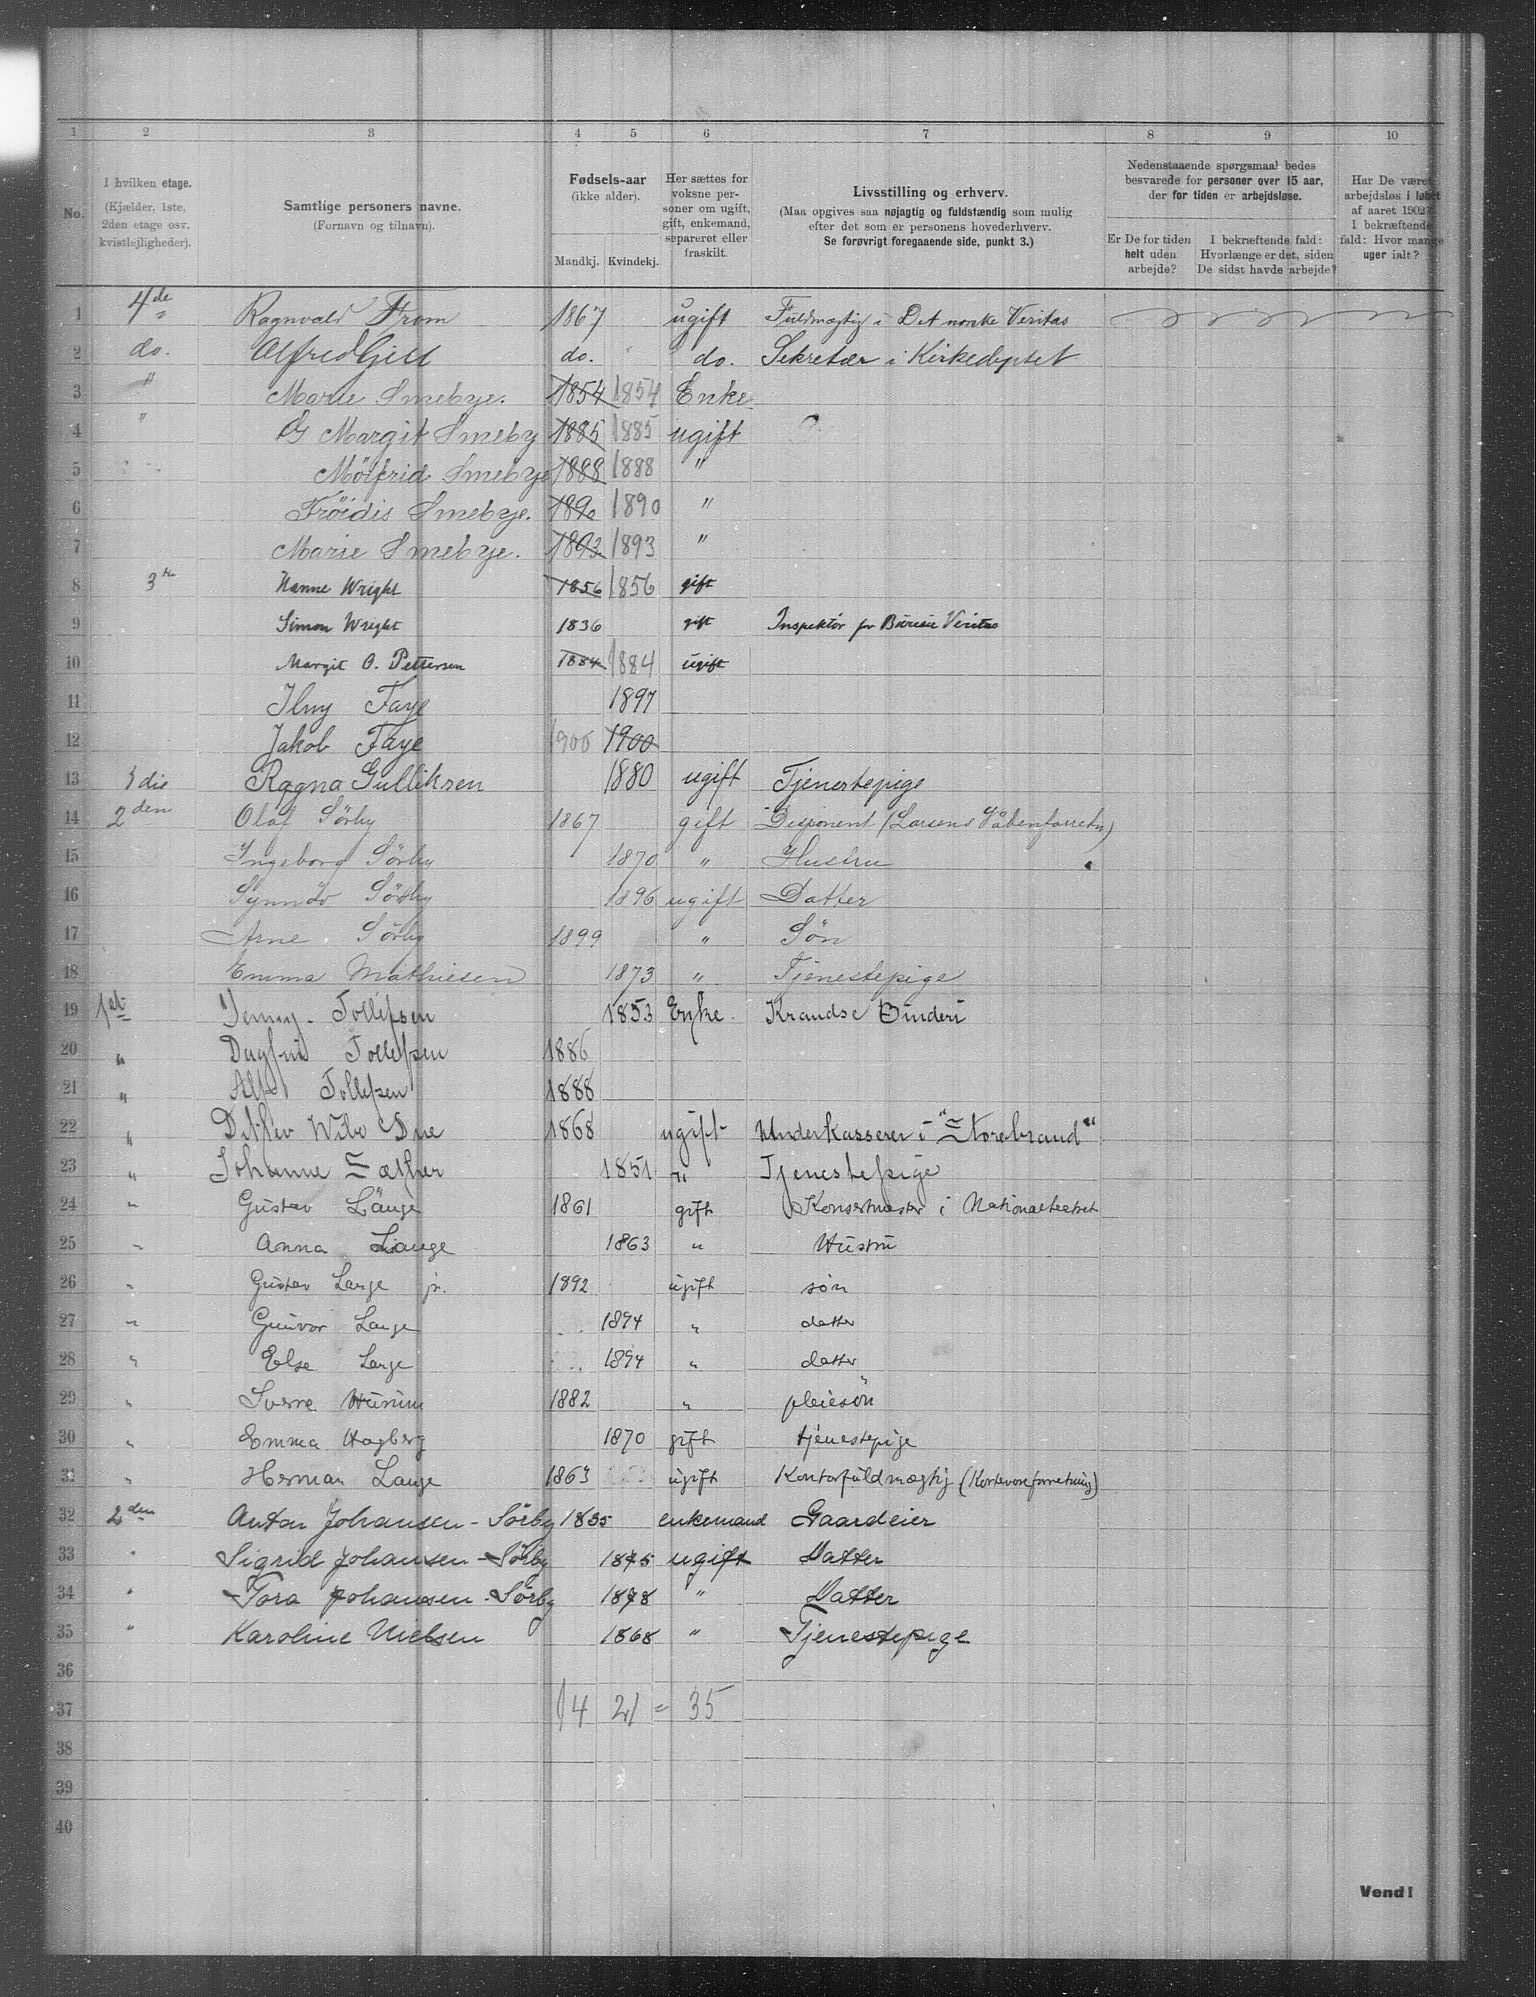 1 2 3 4 5 6 7 8 9 10
No.
I hvilken etage.
(Kjælder, 1ste,
2den etage osv.
kvistlejligheder).
Samtlige personers navne.
(Fornavn og tilnavn).
Fødsels-aar
(ikke alder).
Mandkj. Kvindekj.
Her sættes for
voksne per-
soner om ugift,
gift, enkemand,
separeret eller
fraskilt.
Livsstilling og erhverv.
(Maa opgives saa nøjagtig og fuldstændig som mulig
efter det som er personens hovederhverv.
Se forøvrigt foregaaende side, punkt 3.)
Nedenstaaende spørgsmaal bedes
besvarede for personer over 15 aar,
der for tiden er arbejdsløse.
Er De for tiden
helt uden
arbejde?
I bekræftende fald:
Hvorlænge er det, siden
De sidst havde arbejde?
Har De været
arbejdsløs i løbet
af aaret 1902?
I bekræftende
fald: Hvor mange
uger ialt?
1 4de Ragnvald From 1867 ugift Fuldmægtig i Det norske Veritas
2 do. Alfred Gjell do. do. Sekretær i Kirkedeptet
3 " Marie Smebye. 1854 1854 Enke
4 " Margit Smeby 1885 1885 ugift
5 Mölfrid Smebye 1888 1888 "
6 Fröidis Smebye. 1890 1890 "
7 Marie Smebye. 1893 1893 "
8 3die Hanne Wright 1856 1856 gift
9 Simon Wright 1836 gift Inspektör for Bureau Veritas
10 Margit O. Pettersen 1884 1884 ugift
11 Faye 1897
12 Jakob Faye 1900 1900
13 3die Ragna Gulliksen 1880 ugift Tjenestepige
14 2den Olaf Sörby 1867 gift Disponent (Larsens Våbenforretn)
15 Ingeborg Sörby 1870 " Hustru
16 Synnöv Sörby 1896 ugift Datter
17 Arne Sörby 1899 " Sön
18 Emma Mathiesen 1873 " Tjenestepige
19 1st Jenny Tollefsen 1853 Enke. Krandse Binderi
20 " Dagfin Tollefsen 1886
21 " Alf Tollefsen 1888
22 " Ditlev Wibe Due 1868 ugift Underkasserer i "Storebrand"
23 " Johanne Sæther 1851 " Tjenestepige
24 " Gustav Lange 1861 gift Konsertmester i Nationalteatret
25 " Anna Lange 1863 " Hustru
26 " Gustav Lange jr. 1892 ugift sön
27 " Gunvor Lange 1894 " datter
28 " Else Lange 1894 " datter
29 " Sverre 1882 " pleiesön
30 " Emma Hagberg 1870 gift tjenestepige
31 " Herman Lange 1863 ugift Kontorfuldmægtig (Kortevareforretning)
32 2den Anton Johansen - Sörby 1835 enkemand Gaardeier
33 " Sigrid Johansen - Sörby 1875 ugift Datter
34 " Tora Johansen - Sörby 1878 " Datter
35 " Karoline Nielsen 1868 " Tjenestepige
36
37 14 21 = 35
38
39
40
Vend!